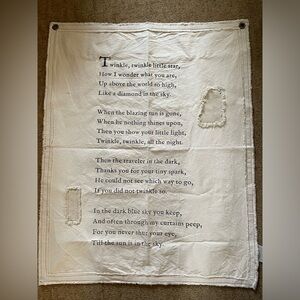 Twinkle, twinkle little star,
How I wonder what you are,
Up above the world so high,
Like a diamond in the sky.
When the blazing sun is gone,
When he nothing shines upon,
Then you show your little light,
Twinkle, twinkle, all the night.
Then the traveler in the dark,
Thanks you for your tiny spark,
He could not see which way to go,
If you did not twinkle so.
In the dark blue sky you keep,
And often through my curtains peep,
For you never shut your eye,
Till the sun is in the sky.